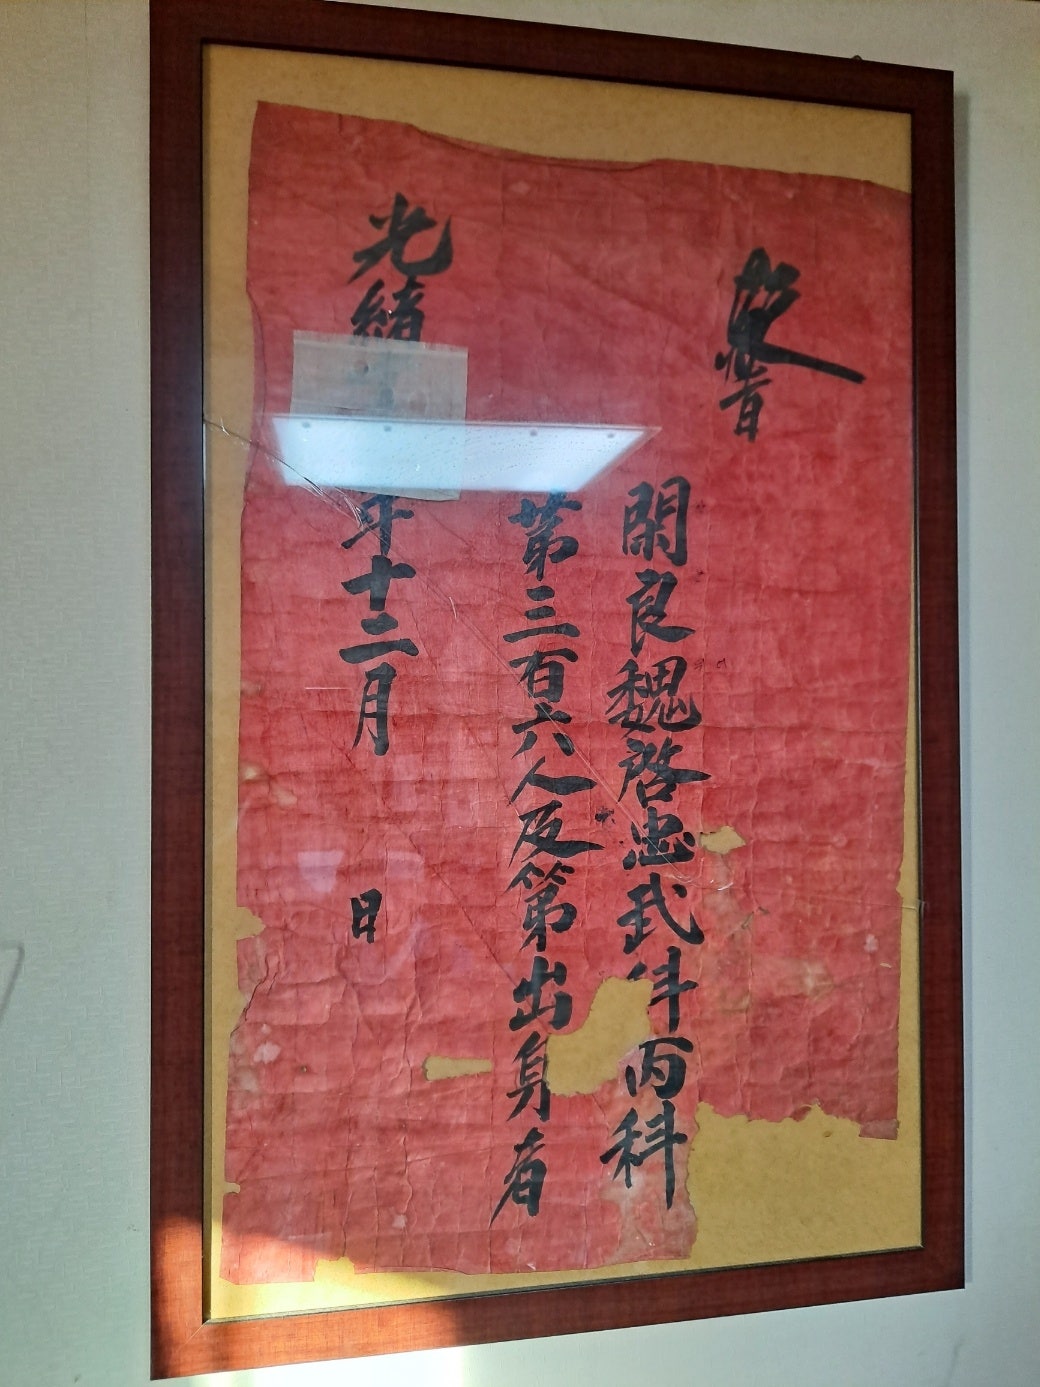 敎旨
閑良魏啓忠武科丙科
第三百六人及第出身者
光緖年十二月 日